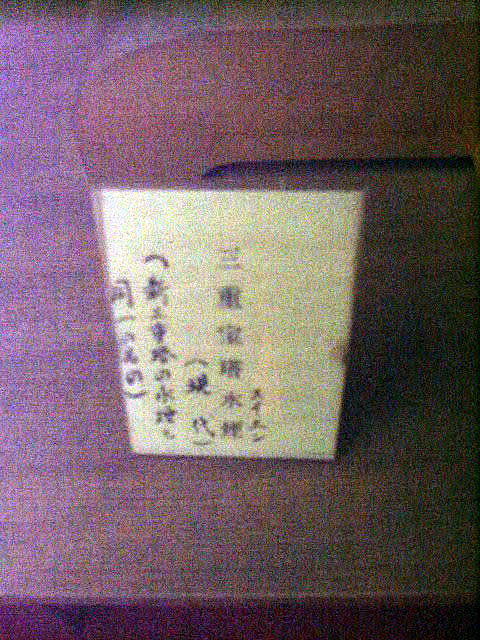 三重宝塔水煙
スイエン
(現代)
(新三重塔の水煙と
同一のもの)